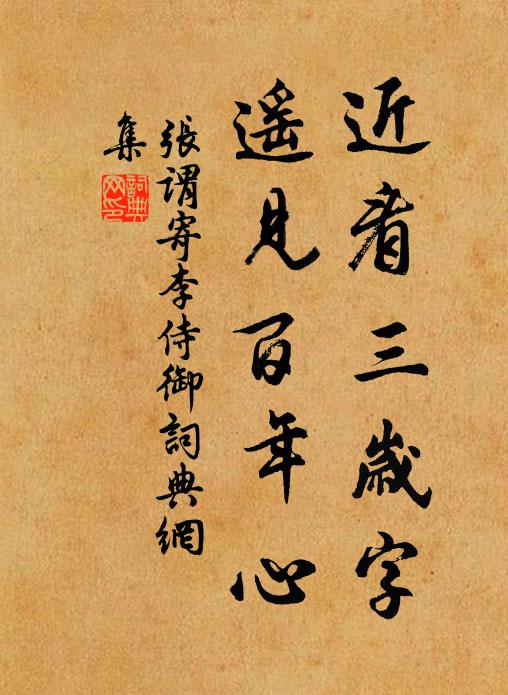 近看三歲字
遥見百年心
張謂寄李侍御詞典網
集
詞典
网印